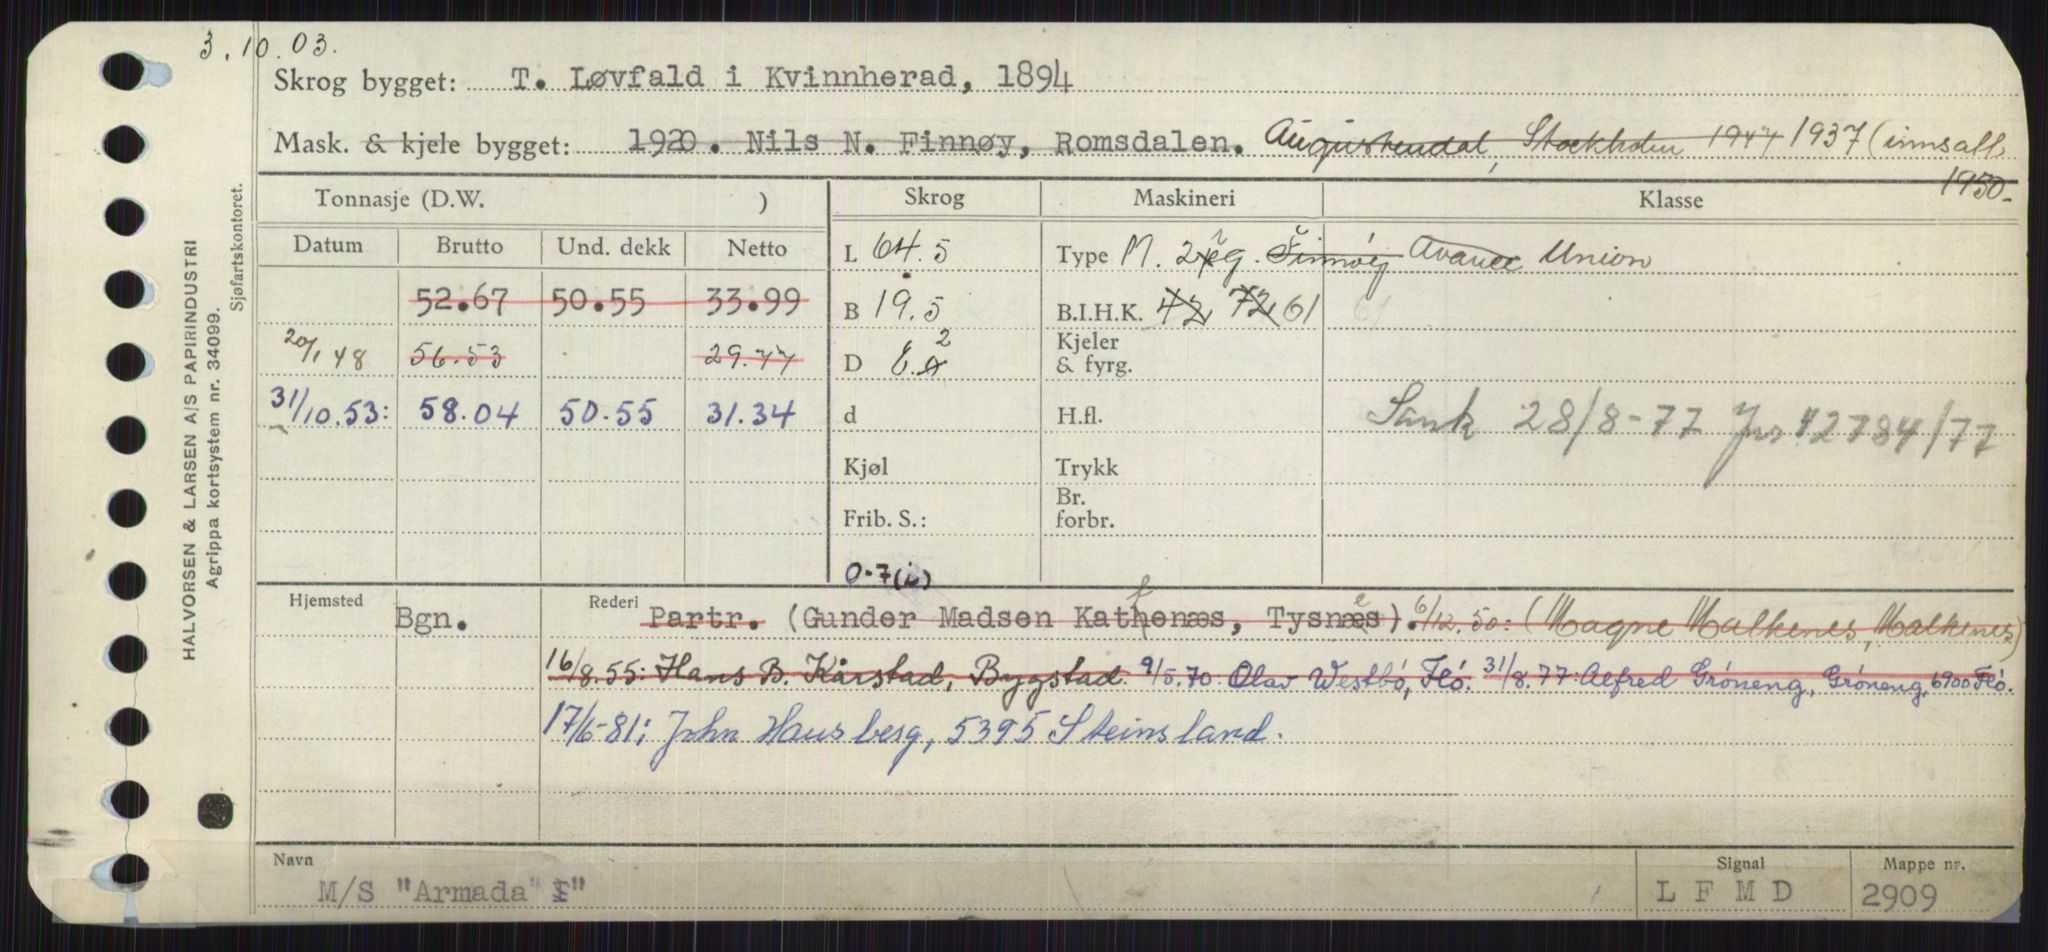 3.10.03.
Skrog bygget: T. Løvfald i Kvinnherad, 1894
Mask. & kjele bygget: 1920. Nils N. Finnøy, Romsdalen. Augustendal, Stockholm 1947 1937 (innsatt
1950.
HALVORSEN & LARSEN A/S PAPIRINDUSTRI
Agrippa kortsystem nr. 34099.
Sjøfartskontoret.
Tonnasje (D.W. ) Skrog Maskineri Klasse
Datum Brutto Und. dekk Netto L 64.5 Type M. 2 g. Finnøy Avance Union
52.67 50.55 33.99 B 19.5 B.I.H.K. 42 72 61
20/1 48 56.53 29.77 D 8.2 Kjeler
& fyrg.
31/10.53: 58.04 50.55 31.34 d H.fl. Sank 28/8-77 Jnr 12784/77
Kjøl Trykk
Br.
Frib. S.: forbr.
0-7(i)
Hjemsted Bgn. Rederi Partr. (Gunder Madsen Kathenæs, Tysnæs). 6/12.50: (Magne Malkenes, Malkenes)
16/8.55: Hans B. Kårstad, Bygstad. 9/5.70 Olav Westbö, Flö. 31/8.77: Alfred Gröneng, Gröneng, 6900 Flö.
17/6-81: John Hausberg, 5395 Steinsland.
Navn Signal Mappe nr.
M/S "Armada" I" L F M D 2909